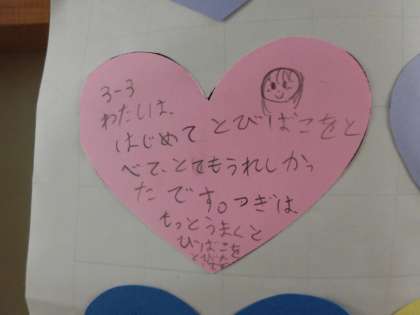 3-3
わたしは、
はじめて とびばこをと
べて、とてもうれしかっ
た です。つぎは
もっとうまくと
びばこを
とびたい
です。